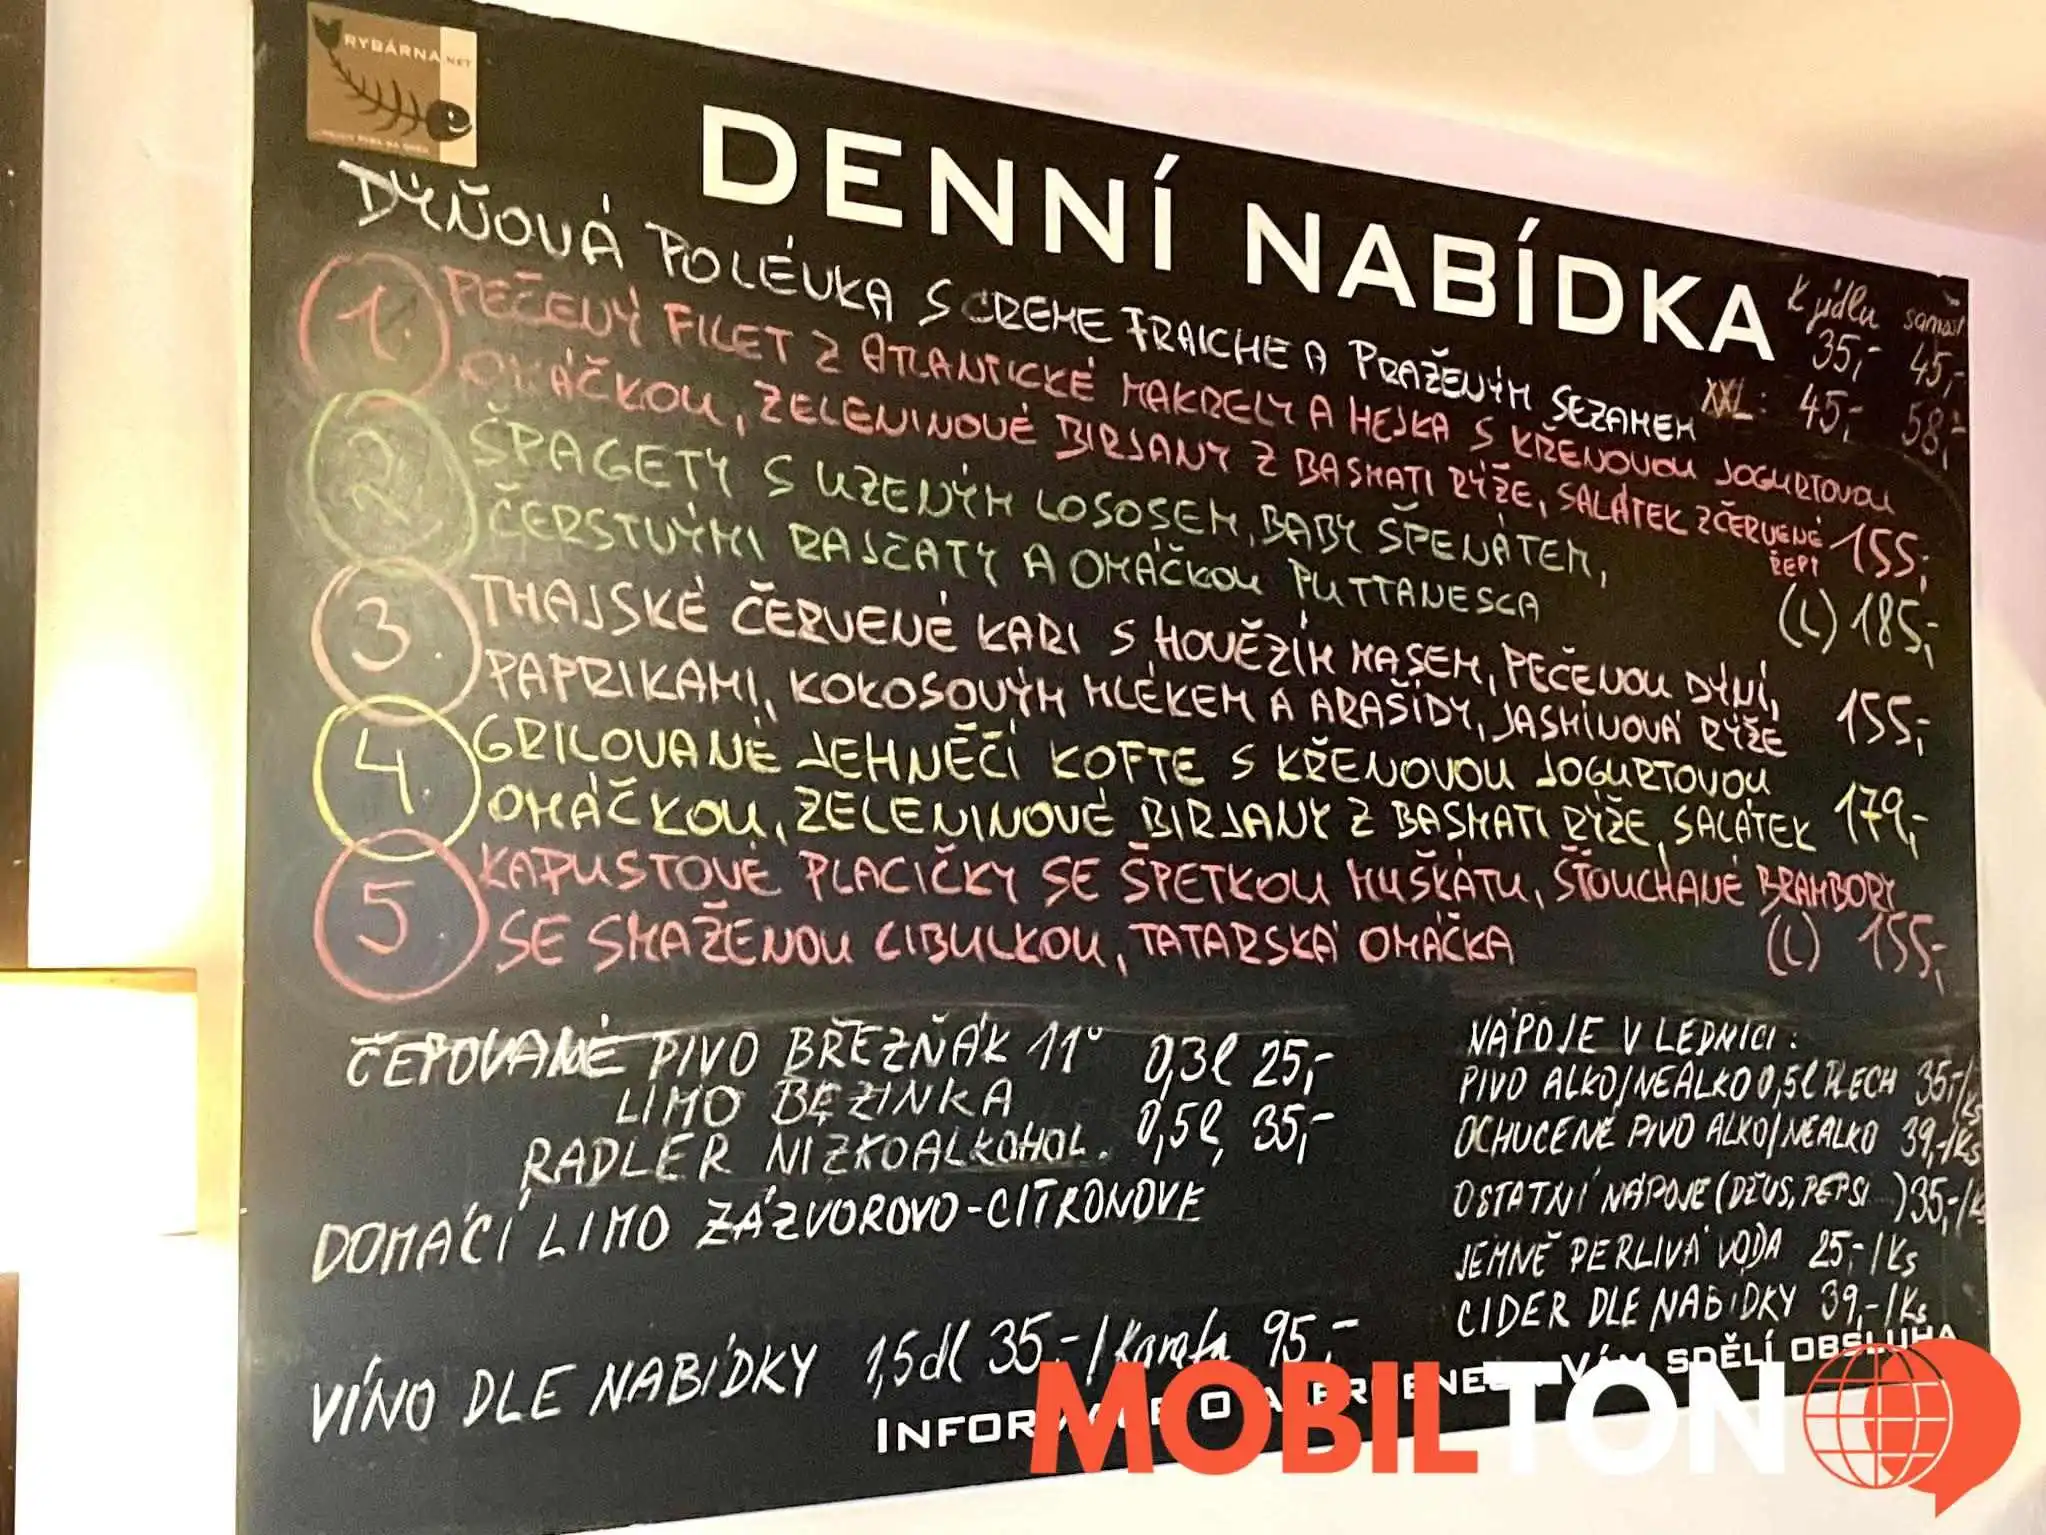 RYBÁRNA.NET
DENNÍ NABÍDKA
K jídlu samost.
DÝŇOVÁ POLÉVKA S CREME FRAICHE A PRAŽENÝM SEZAMEM 35,- 45,-
XXL: 45,- 58,-
1. PEČENÝ FILET Z ATLANTICKÉ MAKRELY A HEJKA S KŘENOVOU JOGURTOVOU
OMÁČKOU, ZELENINOVÉ BIRJANY Z BASMATI RÝŽE, SALÁTEK Z ČERVENÉ ŘEPY 155,-
2. ŠPAGETY S UZENÝM LOSOSEM, BABY ŠPENÁTEM,
ČERSTVÝMI RAJČATY A OMÁČKOU PUTTANESCA (L) 185,-
3. THAJSKÉ ČERVENÉ KARI S HOVĚZÍM MASEM, PEČENOU DÝNÍ,
PAPRIKAMI, KOKOSOVÝM MLÉKEM A ARAŠÍDY, JASMINOVÁ RÝŽE 155,-
4. GRILOVANÉ JEHNĚČÍ KOFTE S KŘENOVOU JOGURTOVOU
OMÁČKOU, ZELENINOVÉ BIRJANY Z BASMATI RÝŽE, SALÁTEK 179,-
5. KAPUSTOVÉ PLACIČKY SE ŠPETKOU MUŠKÁTU, ŠŤOUCHANÉ BRAMBORY
SE SMAŽENOU CIBULKOU, TATARSKÁ OMÁČKA (L) 155,-
ČEPOVANÉ PIVO BŘEZŇÁK 11° 0,3l 25,-
LIMO BEZINKA
RADLER NIZKOALKOHOL. 0,5l, 35,-
DOMÁCÍ LIMO ZÁZVOROVO-CITRONOVE
VÍNO DLE NABÍDKY 1,5dl 35,-/Karafa 95,-
NÁPOJE V LEDNICI:
PIVO ALKO/NEALKO 0,5l PLECH 35,-/Ks
OCHUCENÉ PIVO ALKO/NEALKO 39,-/Ks
OSTATNÍ NÁPOJE (DŽUS, PEPSI...) 35,-/Ks
JEMNĚ PERLIVÁ VODA 25,-/Ks
CIDER DLE NABIDKY 39,-/Ks
INFORMACE O ALERGENECH VÁM SDĚLÍ OBSLUHA
MOBILTON